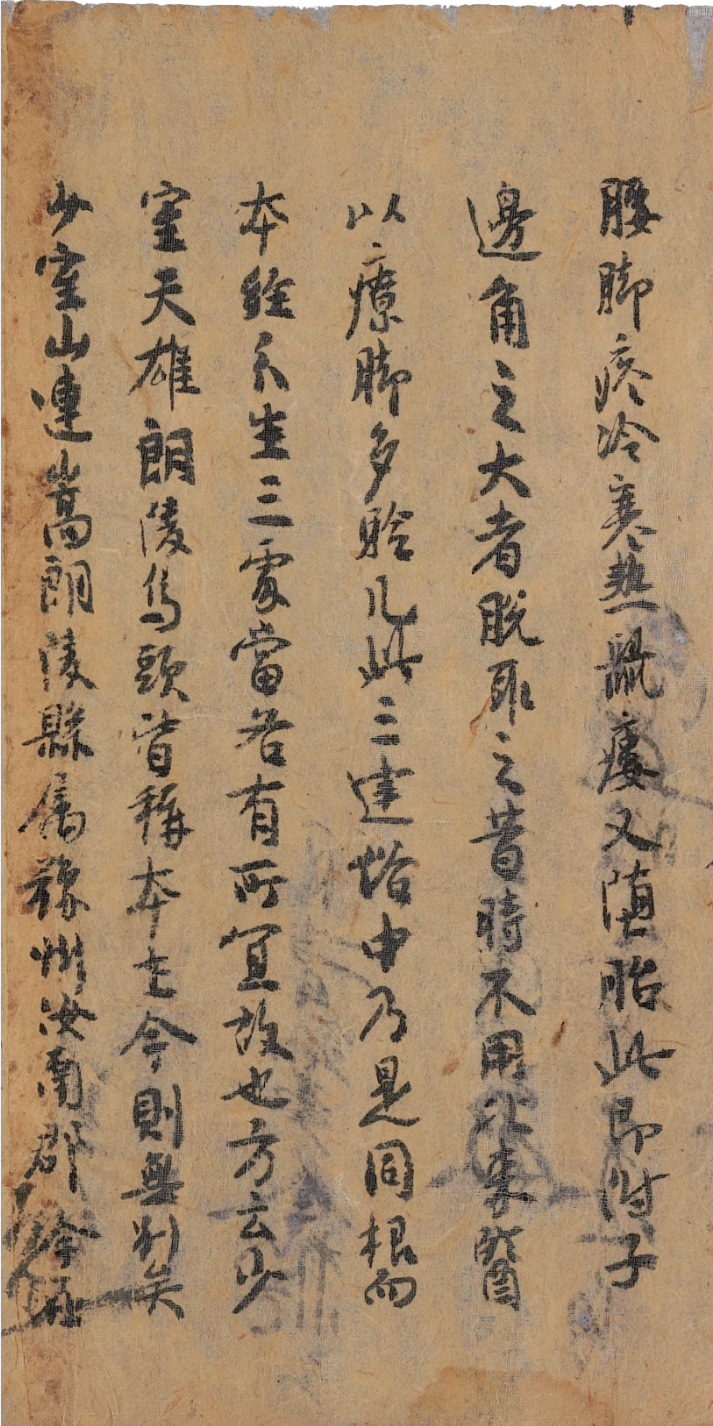 腰脚疼冷寒熱鼠瘻又墮胎此即附子
邊角之大者脫取之昔時不用比來醫
以療脚多驗凡此三建俗中乃是同根而
夲經分生三處當各有所宜故也方云少
室天雄朗陵烏頭皆稱夲土今則無別矣
少室山連嵩朗陵縣屬豫州汝南郡今在